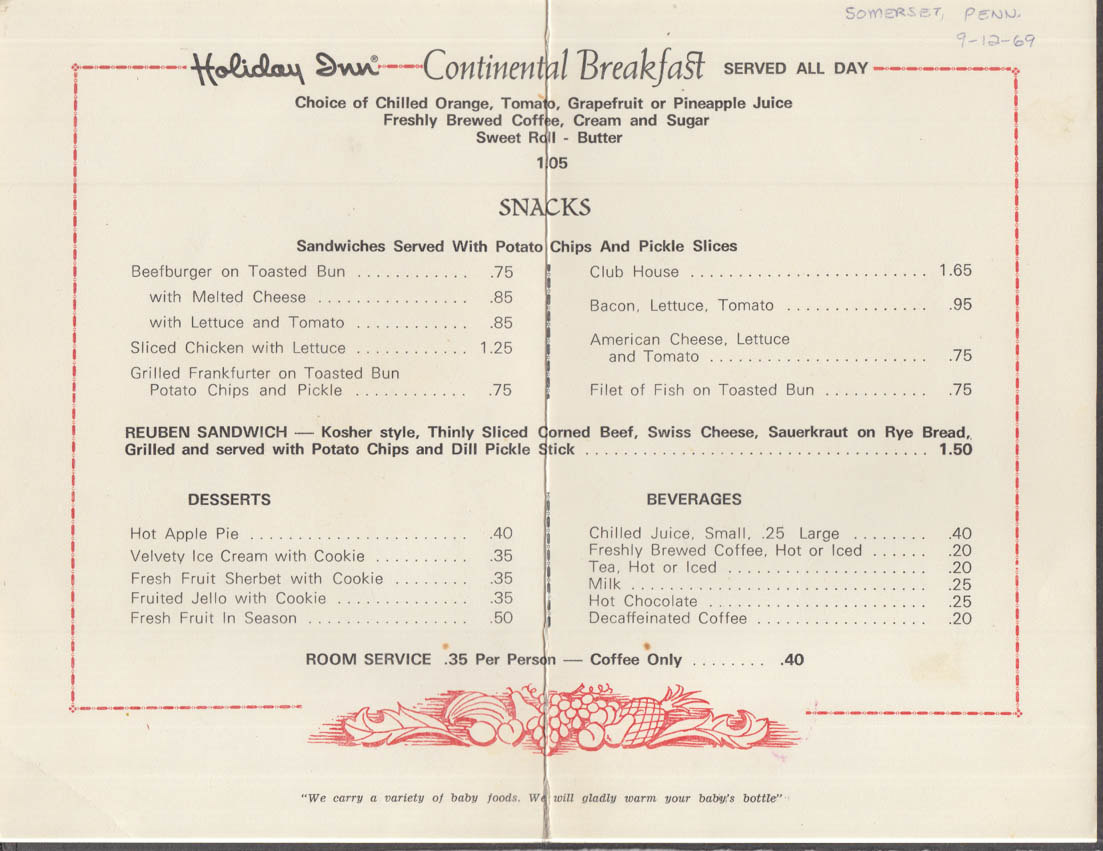 SOMERSET, PENN.
9-12-69
Holiday Inn® Continental Breakfast SERVED ALL DAY
Choice of Chilled Orange, Tomato, Grapefruit or Pineapple Juice
Freshly Brewed Coffee, Cream and Sugar
Sweet Roll - Butter
1.05
SNACKS
Sandwiches Served With Potato Chips And Pickle Slices
Beefburger on Toasted Bun ............ .75
with Melted Cheese ................ .85
with Lettuce and Tomato ............ .85
Sliced Chicken with Lettuce ............ 1.25
Grilled Frankfurter on Toasted Bun
Potato Chips and Pickle ............ .75
Club House ......................... 1.65
Bacon, Lettuce, Tomato ............... .95
American Cheese, Lettuce
and Tomato ....................... .75
Filet of Fish on Toasted Bun ........... .75
REUBEN SANDWICH — Kosher style, Thinly Sliced Corned Beef, Swiss Cheese, Sauerkraut on Rye Bread,
Grilled and served with Potato Chips and Dill Pickle Stick .................................... 1.50
DESSERTS
Hot Apple Pie ....................... .40
Velvety Ice Cream with Cookie .......... .35
Fresh Fruit Sherbet with Cookie ........ .35
Fruited Jello with Cookie .............. .35
Fresh Fruit In Season ................. .50
BEVERAGES
Chilled Juice, Small, .25 Large ........ .40
Freshly Brewed Coffee, Hot or Iced ...... .20
Tea, Hot or Iced ..................... .20
Milk ............................... .25
Hot Chocolate ....................... .25
Decaffeinated Coffee .................. .20
ROOM SERVICE .35 Per Person — Coffee Only ........ .40
"We carry a variety of baby foods. We will gladly warm your baby's bottle"